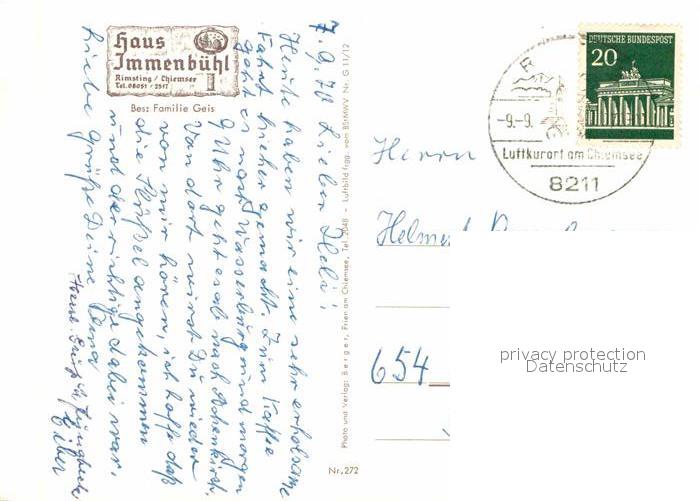 Haus
Immenbühl
Rimsting / Chiemsee
Tel. 08051 - 2517
Bes: Familie Geis
7.9.70 Lieber Heli!
Heute haben wir eine sehr erholsame
Fahrt hierher gemacht. Zum Kaffee
geht es nach Wasserburg und morgen
Uhr geht es ab nach
Von dort wirst Du wieder
von mir hören, ich hoffe daß
die angekommen
und der richtige dabei war.
Liebe Grüße Deine
Photo und Verlag: Berger, Prien am Chiemsee, Tel. 2048 - Luftbild frgg. vom BStMWV Nr. G 11/12
Nr. 272
DEUTSCHE BUNDESPOST
20
-9.-9.
Luftkurort am Chiemsee
8211
Herrn
Helmut
654
privacy protection
Datenschutz